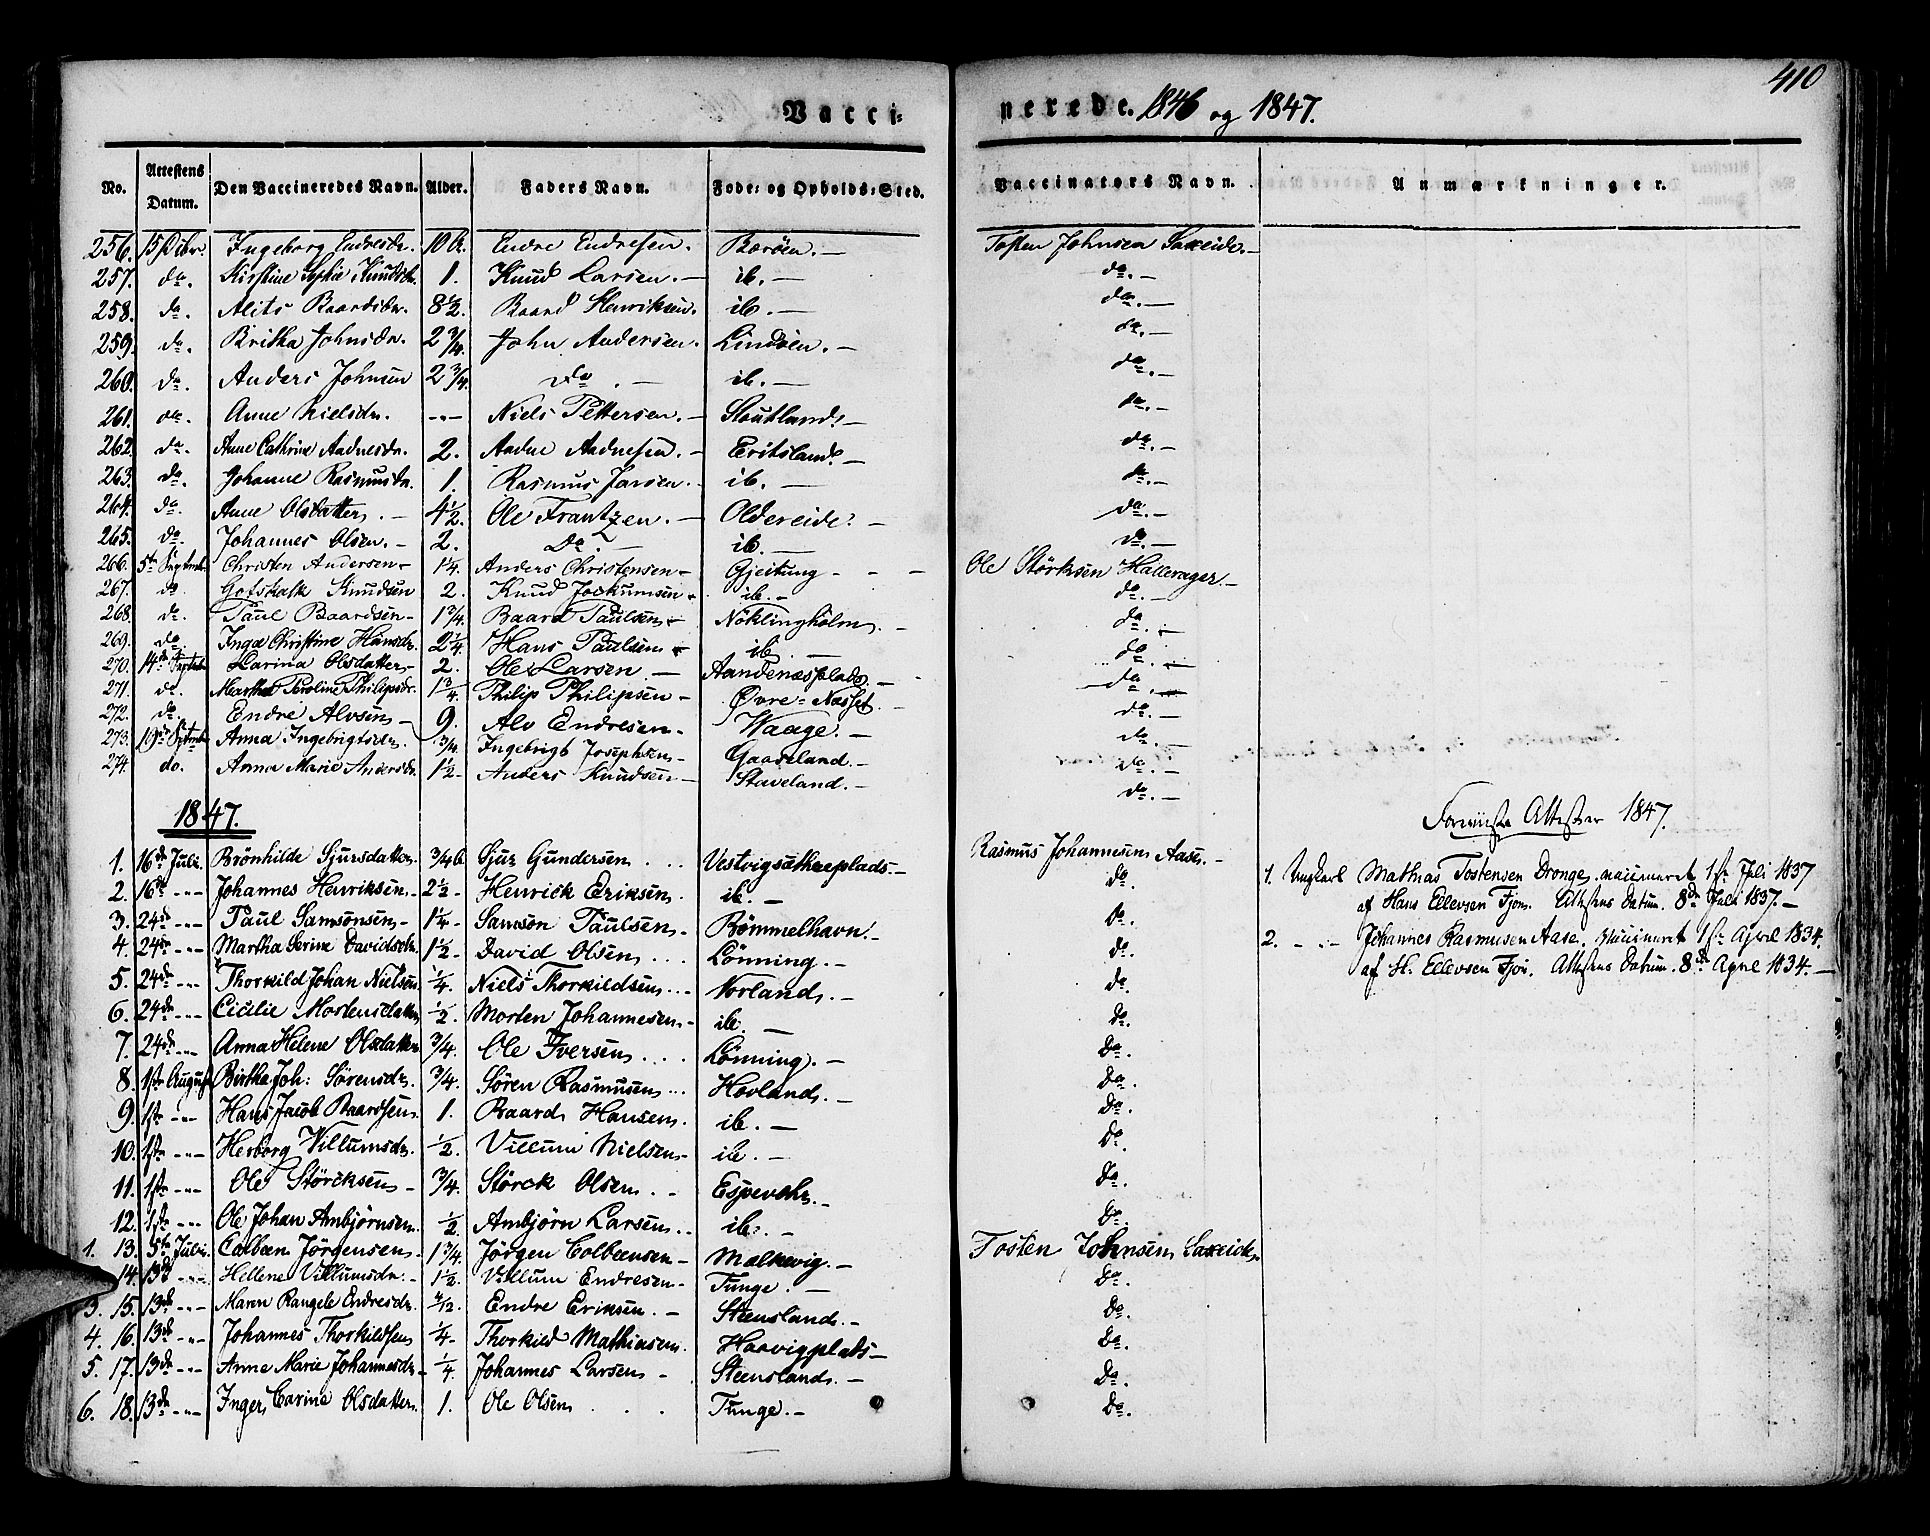 410
Vacci-
nerede. 1846 og 1847.
No. Attestens Datum. Den Vaccineredes Navn. Alder. Faders Navn. Føde- og Opholds-Sted. Vaccinators Navn. Anmærkninger.
256. 15 Ingeborg Endresdr. 10 Endre Endresen. Borøen. Tosten Johnsen Saxeide.
257. do. Kirstine Sophie Knudsdr. 1. Knud Larsen. ib. do.
258. do. Alits Baardsdr. 8½. Baard Henriksen. ib. do.
259. do. Britha Johnsdr. 2¾. John Andersen. Lindøen. do.
260. do. Anders Johnsen 2¾. do. ib. do.
261. do. Anne Nielsdr. --- Niels Pettersen. Stoutland. do.
262. do. Anne Cathrine Aadnesdr. 2. Aadne Aadnesen. Eritsland. do.
263. do. Johanne Rasmusdr. 1. Rasmus Jarsen. ib. do.
264. do. Anne Olsdatter. 4½. Ole Frantzen. Oldereide. do.
265. do. Johannes Olsen. 2. Do. ib. do.
266. 5te Septembr Christen Andersen 1¼. Anders Christensen Gjeitung Ole Störksen Hallevager.
267. do. Gotskalk Knudsen 2. Knud Jockumsen ib. do.
268. do. Paul Baardsen 1¾. Baard Paulsen Nöklingholm. do.
269. do. Inga Christine Hansdr. 2¼ Hans Paulsen ib. do.
270. 14de Septembr Larina Olsdatter 2. Ole Larsen. Aandenæsplads. do.
271. do. Martha Karoline Philipsdr. 1¾ Philip Philipsen Øvre-Næsset. do.
272. do. Endre Alvsen 9. Alv Endresen Waage. do.
273. 19de Septembr Anna Ingebrigtsdr. ¾. Ingebrigt Josephsen Gaaseland. do.
274. do. Anna Marie Andersdr. 1½ Anders Knudsen Staveland. do.
1847.
Attester 1847.
1. 16de Juli. Brönhilde Sjursdatter ¾ Sjur Gundersen Vestvigsathreplads. Rasmus Johannesen Aase.
2. 16de Johannes Henriksen 2½ Henrick Eriksen. ib. do.
3. 24de Paul Samsonsen 1¼ Samson Paulsen Bömmelhavn. do.
4. 24de Martha Serine Davidsdr. 1½ David Olsen Lönning. do.
5. 24de Thorkild Johan Nielsen ¼. Niels Thorkildsen Norland. do.
6. 24de Cicilie Mortensdatter ½. Morten Johannesen ib. do.
7. 24de Anna Helene Olsdatter ¾. Ole Iversen Lönning. do.
8. 1ste August Birtha Joh: Sörensdr. ¾. Sören Rasmusen Hovland. do.
9. 1ste Hans Jacob Baardsen 1. Baard Hansen. ib. do.
10. 1ste Herborg Villumsdr. ½. Villum Nielsen ib. do.
11. 1ste Ole Störcksen ¾. Störck Olsen. Espevær. do.
12. 1ste Ole Johan Ambjörnsen. ½ Ambjörn Larsen ib. do.
1. 13. 5te Julii Colbeen Jörgensen 1¾. Jörgen Colbeensen Malkevig. Tosten Johnsen Saxeide
14. 13de Hellene Villumsdr. 1½ Villum Endresen Tunge. do.
3. 15. 13de Maren Rangele Endresdr. 4/12. Endre Eriksen. Steensland. do.
4. 16. 13de Johannes Thorkildsen ¼ Thorkild Mathiasen. Haavigplads do.
5. 17. 13de Anne Marie Johannesdr. ¼ Johannes Larsen Steensland. do.
6. 18. 13de Inger Carine Olsdatter. 1. Ole Olsen Tunge. do.
1. Ungkarl Mathias Tostensen Dronge, vaccineret 1ste Juli 1837
af Hans Ellevsen Fjon. Attestens Datum. 8de Juli 1837.
2. Johannes Rasmusen Aase. vaccineret 1ste April 1834.
af H. Ellevsen Fjon. Attestens Datum. 8de April 1834.